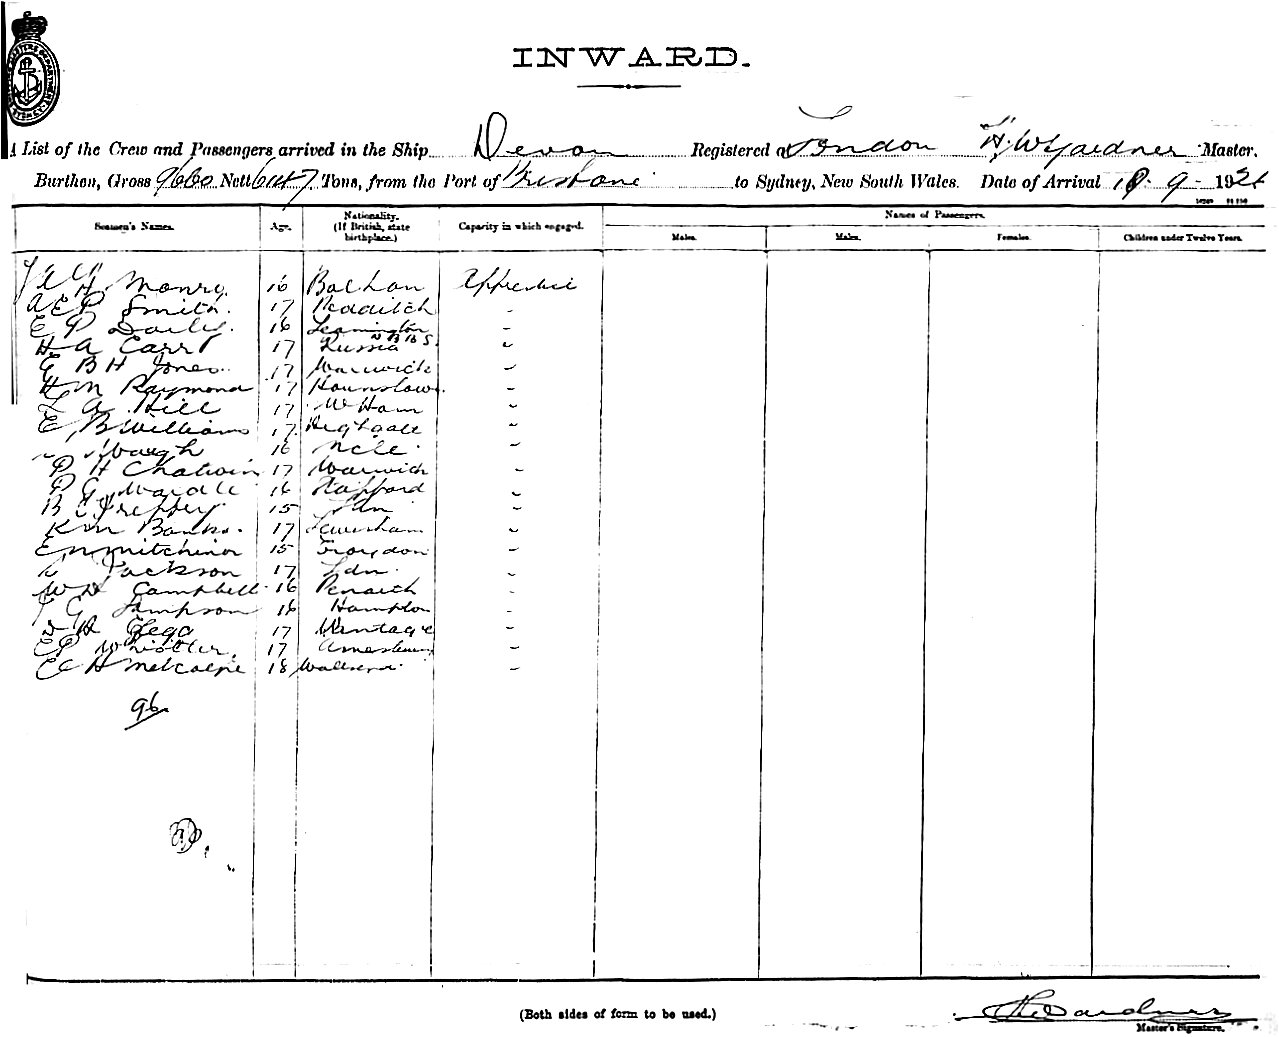 INWARD.
A List of the Crew and Passengers arrived in the Ship Devon Registered at London H. W. Gardner Master.
Burthen, Gross 9660 Nett 6147 Tons, from the Port of Brisbane to Sydney, New South Wales. Date of Arrival 18. 9 - 192
Seamen's Names. Age. Nationality. (If British, state birthplace.) Capacity in which engaged. Names of Passengers.
Males. Males. Females. Children under Twelve Years.
H. Monro. 16 Apprentice
A E P Smith. 17 Redditch "
E P 16 Leamington "
H A Carr 17 Russia N B B S. "
E B H Jones. 17 Warwick "
H M Raymond 17 Hounslow. "
L A Hill 17 W Ham "
E B Williams 17. Highgate "
Waugh 16 Ncle. "
P H Chatwin 17 Warwick "
P G Wardle 16 "
B C Treffry. 15 Ldn "
K M Banks. 17 Lewisham "
E N Mitchinor 15 Croydon "
Jackson 17 Ldn. "
W H Campbell. 16 Penarth "
G Simpson 16 Hampton "
H Gega 17 Wantage "
E P 17 "
E C H Metcalfe 18 "
96
(Both sides of form to be used.)
H W Gardner
Master's Signature.